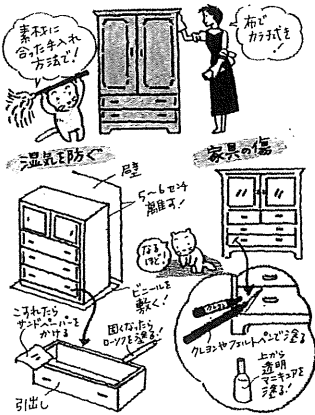 素材に
合った手入れ
方法で!
布で
カラ拭き!
湿気を防ぐ
家具の傷
壁
5~6センチ
離す!
なる
ほど!
ビニールを
敷く!
こすれたら
サンドペーパーを
かける
固くなったら
ロークを塗る!
引出し
クレヨンやフェルトペンで塗る
上から
透明
マニキュアを
塗る!